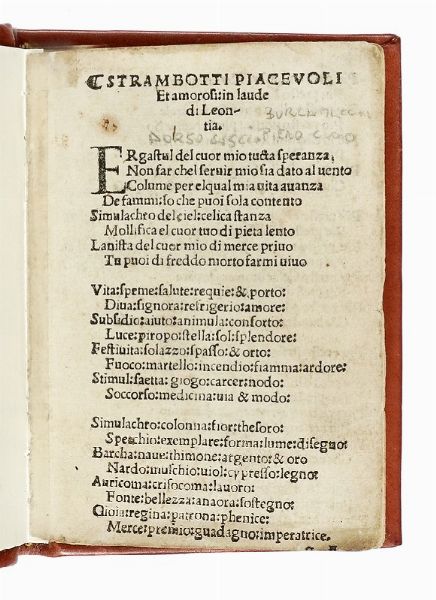 ❡ STRAMBOTTI PIACEVOLI
Et amorosi: in laude
di Leon-
tia.
ERgastul del cuor mio tucta speranza,
Non far chel seruir mio sia dato al uento
Colume per elqual mia uita auanza
De fammi: so che puoi sola contento
Simulachro del ciel: celica stanza
Mollifica el cuor tuo di pieta lento
Lanista del cuor mio di merce priuo
Tu puoi di freddo morto farmi uiuo
Vita: speme: salute: requie: & porto:
Diua: signora: refrigerio: amore:
Subsidio: aiuto: animula: conforto:
Luce: piropo: stella: sol: splendore:
Festiuita: solazzo: spasso: & orto:
Fuoco: martello: incendio: fiamma: ardore:
Stimul: saetta: giogo: carcer: nodo:
Soccorso: medicina: uia & modo:
Simulachro: colonna: fior: thesoro:
Spechio: exemplare: forma: lume: disegno:
Barcha: naue: thimone: argento: & oro
Nardo: muschio: uiol: cypresso: legno:
Auricoma: crisocoma: lauoro:
Fonte: bellezza: anaora: sostegno:
Gioia: regina: patrona: phenice:
Merce: premio: guadagno: imperatrice.